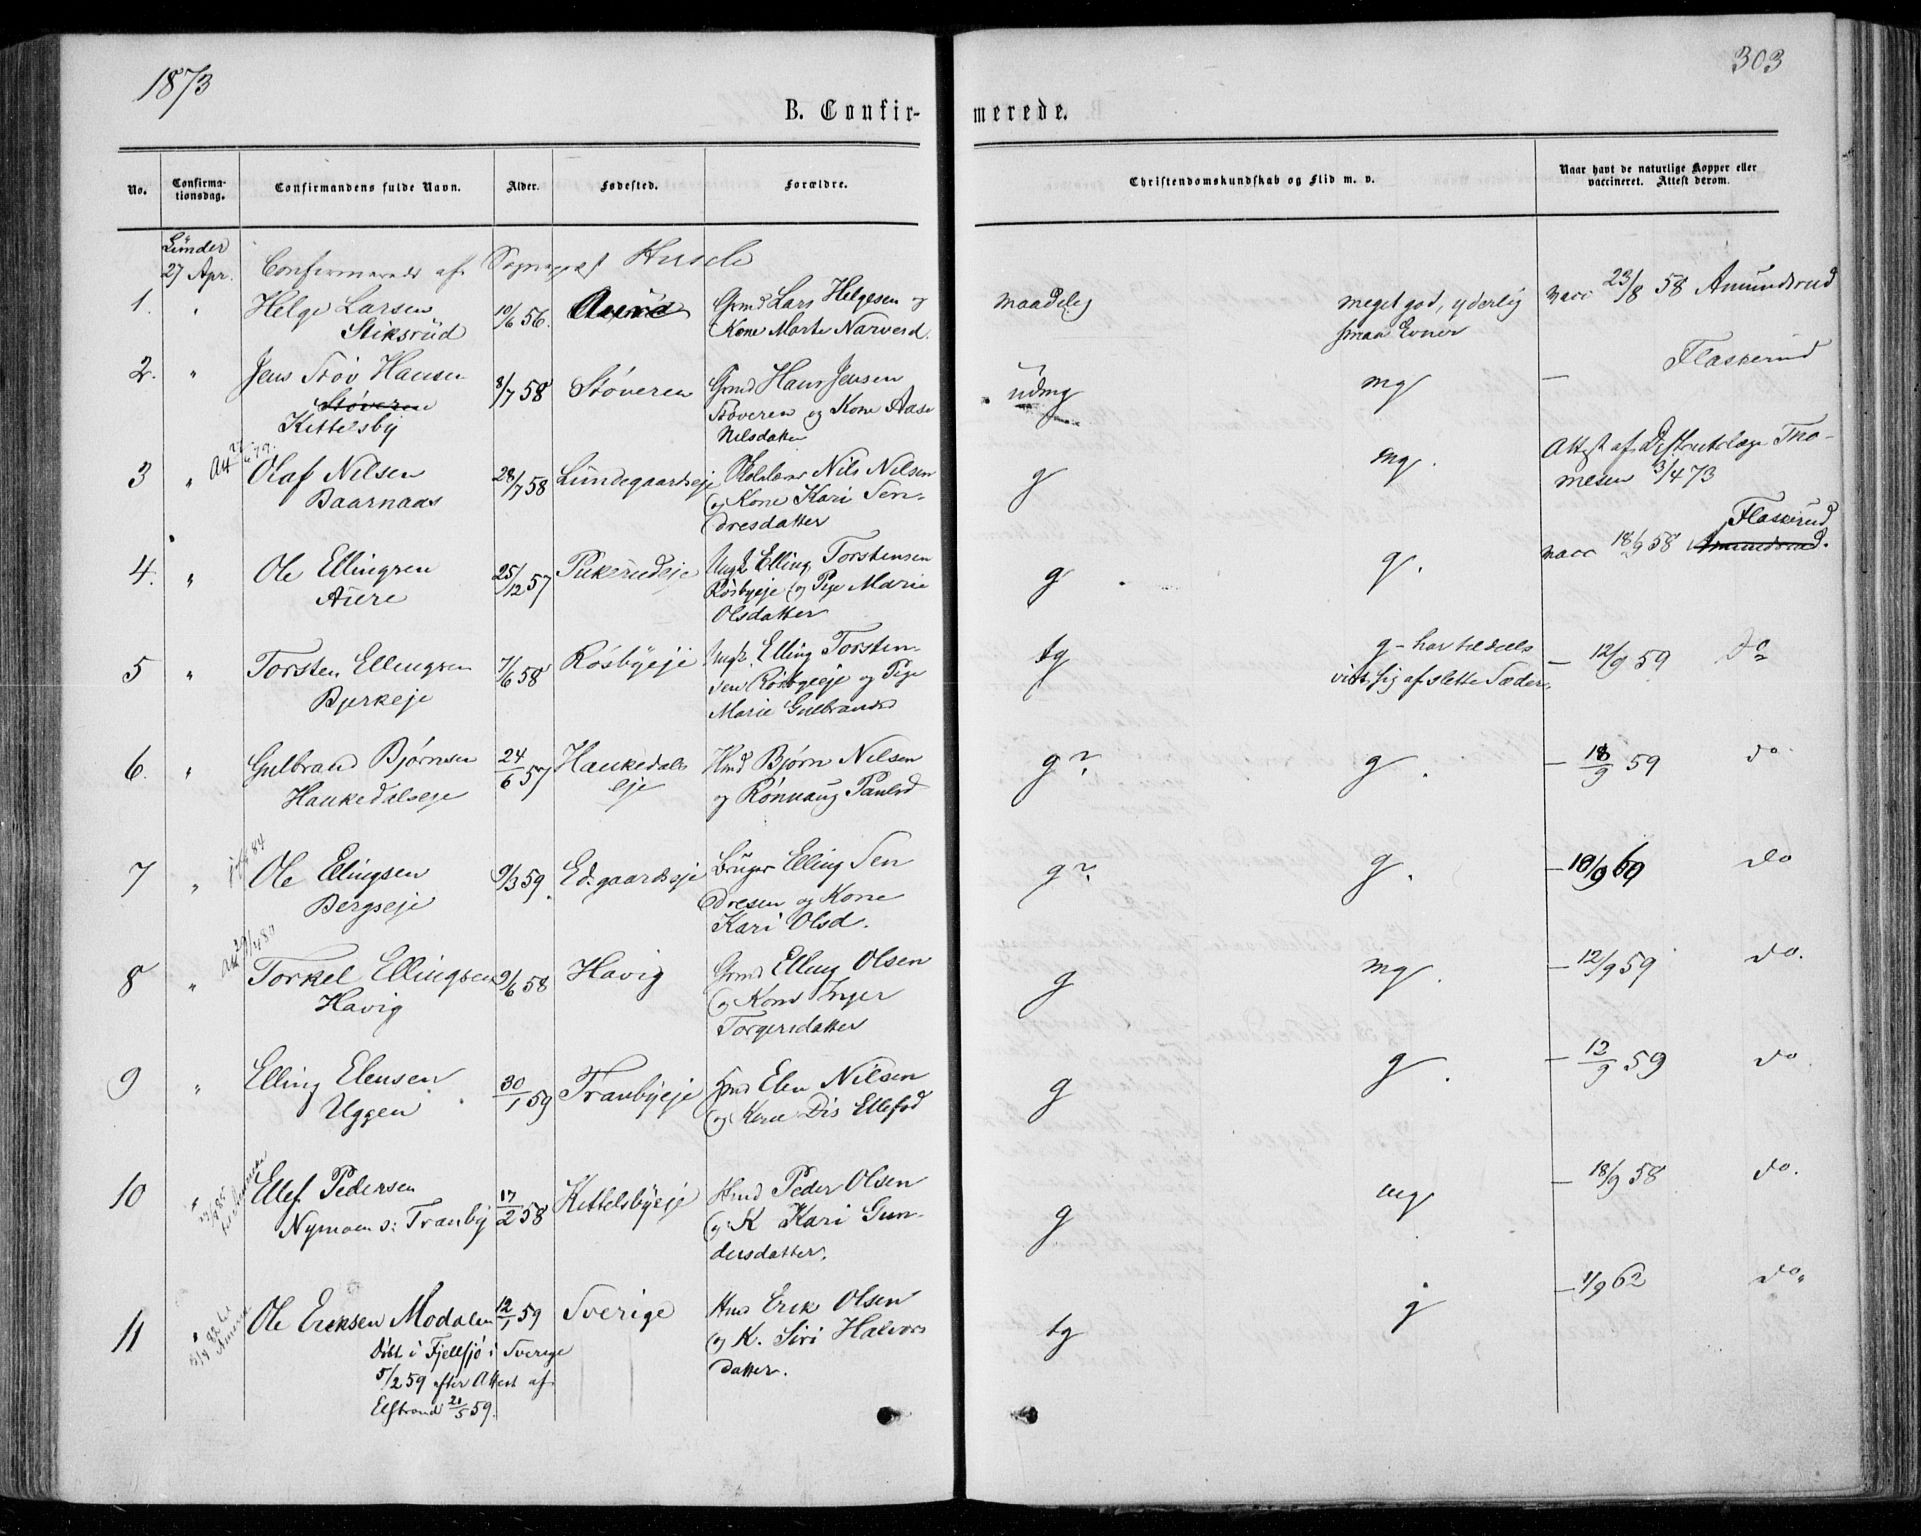 1873
303
B. Confir-
merede.
No.
Confirma-
tionsdag.
Confirmandens fulde Navn.
Alder.
Fødested.
Forældre.
Christendomskundskab og Flid m. v.
Naar havt de naturlige Kopper eller
vaccineret. Attest derom.
Lunder
27 Apr. Confirmerede af Sognepræst
1. " Helge Larsen 10/6 56. Gmd Lars Helgesen og maadelig meget god, yderlig vacc 23/8 58 Amundsrud
Stiksrud Kone Marte Narvesd. smaa Evner
2. " Jens Støv Hansen 8/7 58 Støveren Gmd Hans Jensen mg — Flaskerud
Støveren Støveren og Kone Aase
Kittelsby Nilsdatter
3 " Olaf Nilsen 28/7 58 Lundegaardseje Nils Nilsen g mg. Attest af Distriktslæge Tho-
Baarnaas og Kone Kari Sen- mesen 3/4 73
dresdatter
4. " Ole Ellingsen 25/12 57 Pukerudeje Ungk Elling Torstensen g g. vacc 18/9 58 Flaskerud
Amundsrud.
Aure Røsbyeje og Pige Marie
Olsdatter
5 " Torsten Ellingsen 7/6 58 Røsbyeje Ungk. Elling Torsten- tg g - har tildeels — 12/9 59 do
Bjerkeje sen Røsbyeje og Pige vist sig af slette Sæder
Marie Gulbrandsd
6. " Gulbrand Bjørnsen 24/6 57 Haukedals Hmd Bjørn Nilsen g? g. — 18/9 59 do
Haukedalseje eje og Rønnaug Paulsd
7 " Ole Elingsen 9/3 59. Edsgaardseje Bruger Elling Sen g? g. — 10/9 60 do
Bergseje dresen og Kone
Kari Olsd.
8 " Torkel Ellingsen 9/6 58 Havig Gmd Elling Olsen g mg. — 12/9 59 do.
Havig og Kone Inger
Torgersdatter
9 " Elling Ebensen 30/1 59 Tranbyeje Hmd Eben Nilsen g g. — 12/9 59 do
Uggen og Kone Dis Ellefsd
10 " Ellef Pedersen 17/2 58 Kittelsbyeje Hmd Peder Olsen g mg — 18/9 58 do.
Nymoen v: Tranby og K Kari Gun-
dersdatter.
11 " Ole Eriksen Modalen 12/1 59 Sverige Hmd Erik Olsen tg g — 1/9 62 do.
Døbt i Fjellsjö i Sverige og K. Siri Halvors
5/2 59 efter Attest af datter.
21/5 59.